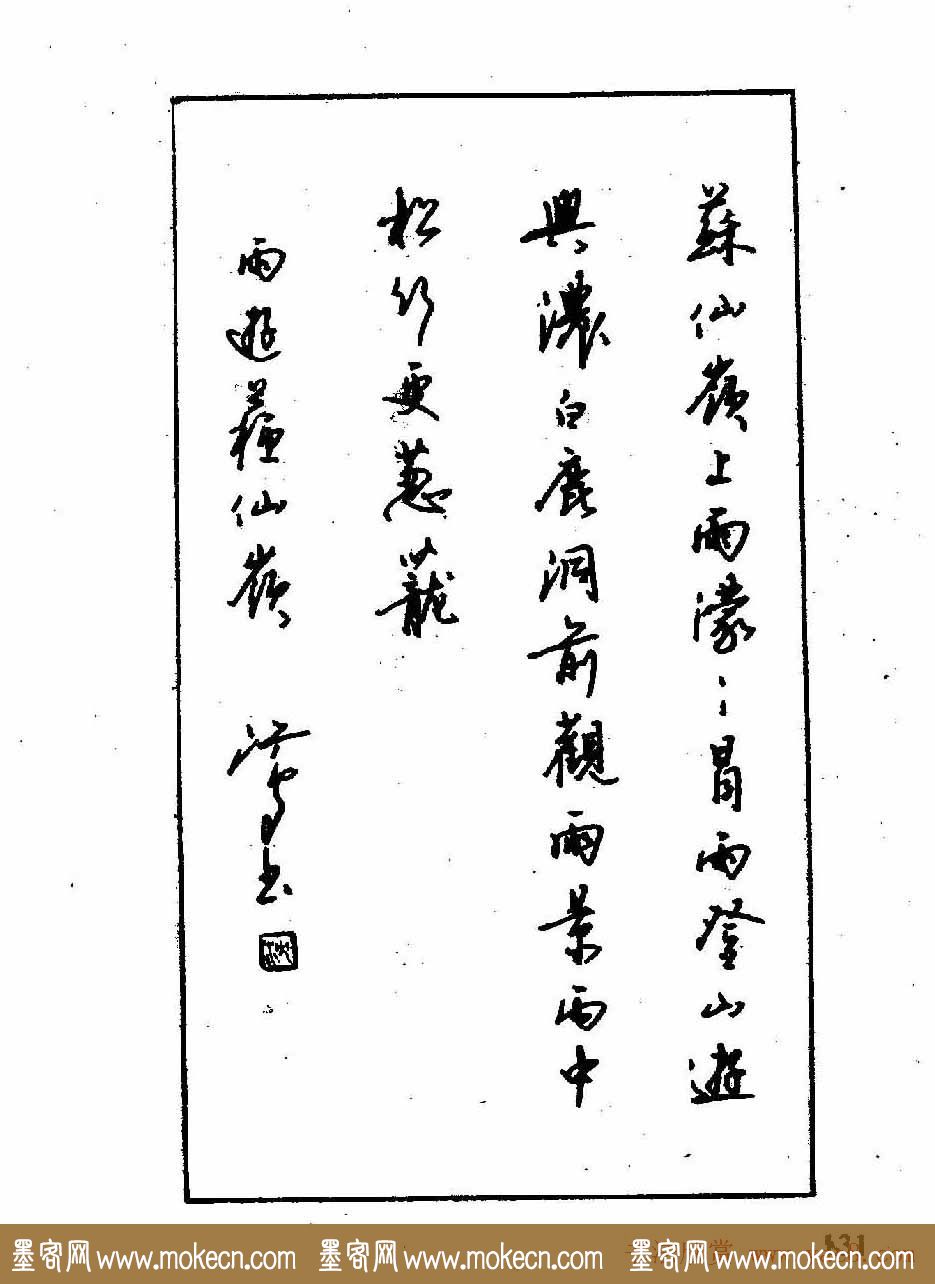 蘇仙嶺上雨濛〻冒雨登山遊
興濃白鹿洞前觀雨景雨中
松竹更蔥蘢
雨遊蘇仙嶺
書
墨客网 www.mokecn.com 墨客网 www.mokecn.com 墨客网 www.mokecn.com
131